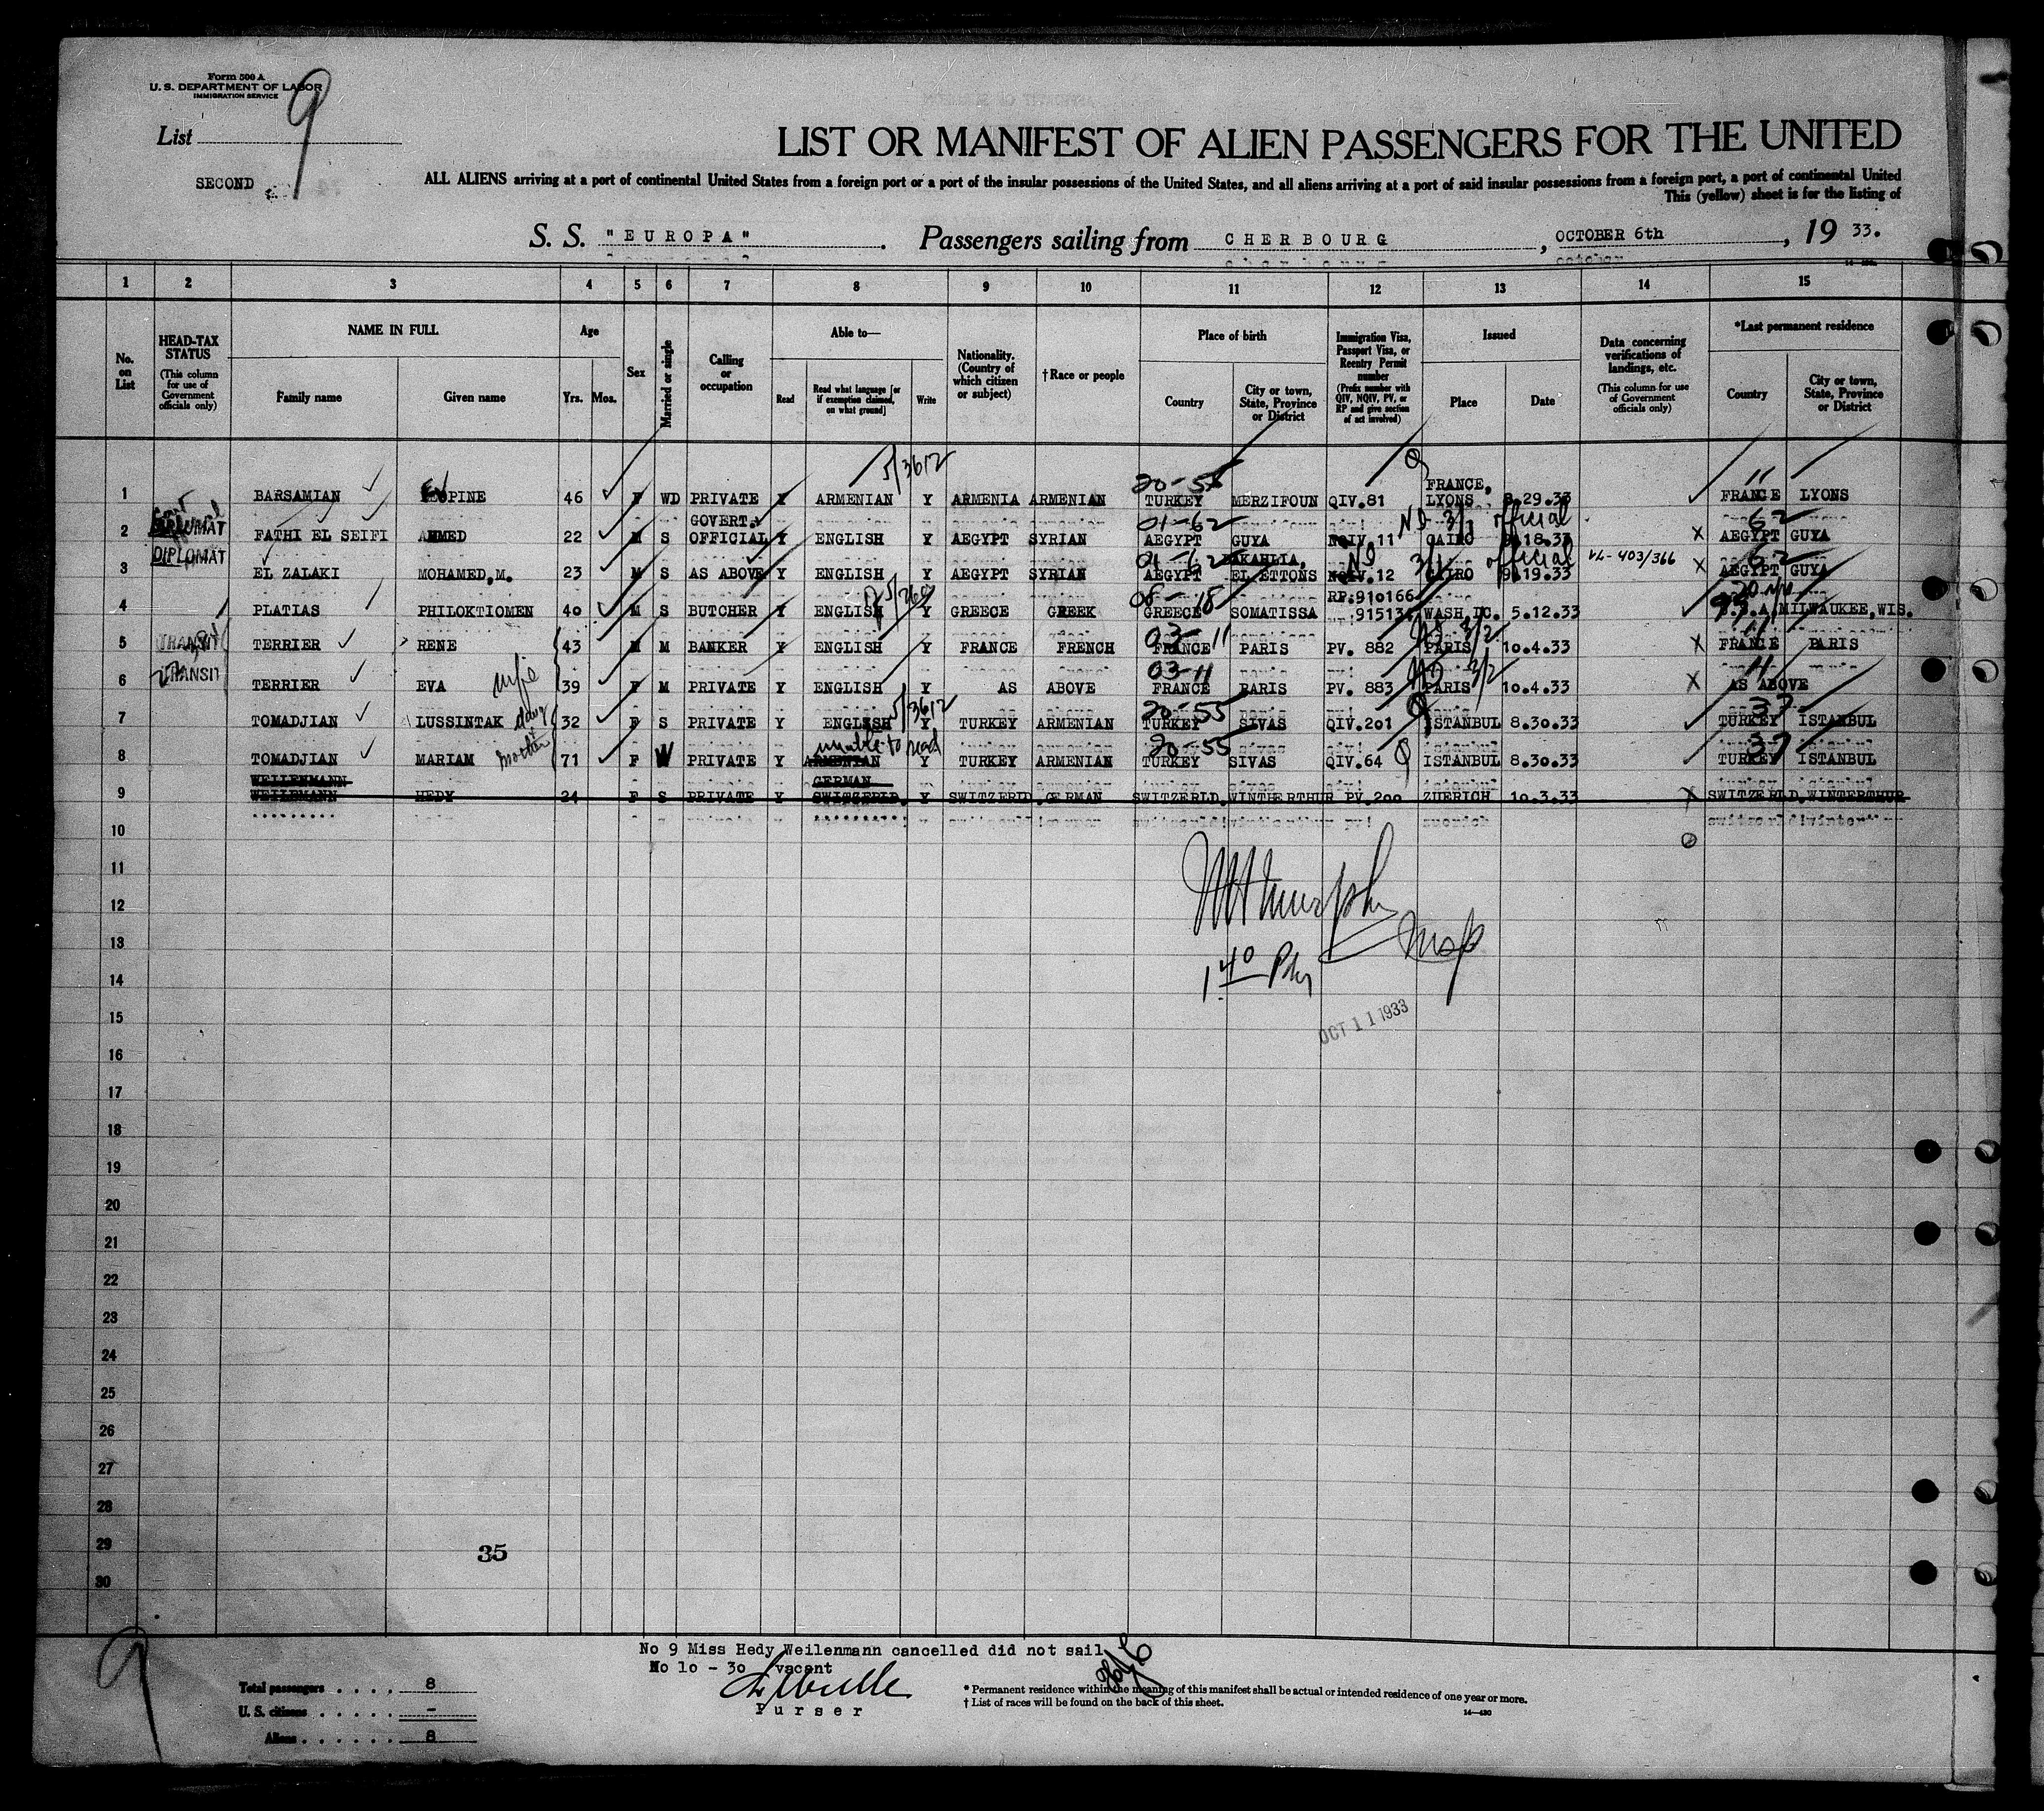 Form 500 A
U. S. DEPARTMENT OF LABOR
IMMIGRATION SERVICE
List 9
SECOND
LIST OR MANIFEST OF ALIEN PASSENGERS FOR THE UNITED
ALL ALIENS arriving at a port of continental United States from a foreign port or a port of the insular possessions of the United States, and all aliens arriving at a port of said insular possessions from a foreign port, a port of continental United
This (yellow) sheet is for the listing of
S. S. "EUROPA". Passengers sailing from CHERBOURG, OCTOBER 6th, 19 33.
1 2 3 4 5 6 7 8 9 10 11 12 13 14 15
No. on List
HEAD-TAX STATUS (This column for use of Government officials only)
NAME IN FULL
Family name Given name
Age
Yrs. Mos.
Sex
Married or single
Calling or occupation
Able to—
Read Read what language [or if exemption claimed, on what ground] Write
Nationality. (Country of which citizen or subject)
†Race or people
Place of birth
Country City or town, State, Province or District
Immigration Visa, Passport Visa, or Reentry Permit number (Prefix number with QIV, NQIV, PV, or RP and give section of act involved)
Issued
Place Date
Data concerning verifications of landings, etc. (This column for use of Government officials only)
*Last permanent residence
Country City or town, State, Province or District
5/3612
20-55 11
1 BARSAMIAN 46 F WD PRIVATE Y ARMENIAN Y ARMENIA ARMENIAN TURKEY MERZIFOUN QIV.81 FRANCE, LYONS 8.29.33 FRANCE LYONS
01-62 ND 3/1 official 62
2 DIPLOMAT FATHI EL SEIFI AHMED 22 M S GOVERT. OFFICIAL Y ENGLISH Y AEGYPT SYRIAN AEGYPT GUYA NQIV.11 CAIRO 9.18.33 X AEGYPT GUYA
01-62 ND 3/1 official VL-403/366 62
3 DIPLOMAT EL ZALAKI MOHAMED.M. 23 M S AS ABOVE Y ENGLISH Y AEGYPT SYRIAN AEGYPT DAKAHLIA, EL ETTONS NQIV.12 CAIRO 9.19.33 X AEGYPT GUYA
08-18
4 PLATIAS PHILOKTIOMEN 40 M S BUTCHER Y ENGLISH Y GREECE GREEK GREECE SOMATISSA RP.910166 915134 WASH.DC. 5.12.33 U.S.A. MILWAUKEE,WIS.
03-11 3/2 11
5 TRANSIT TERRIER RENE 43 M M BANKER Y ENGLISH Y FRANCE FRENCH FRANCE PARIS PV. 882 PARIS 10.4.33 X FRANCE PARIS
03-11 3/2 11
6 TRANSIT TERRIER EVA wife 39 F M PRIVATE Y ENGLISH Y AS ABOVE FRANCE PARIS PV. 883 PARIS 10.4.33 X AS ABOVE
5/3612 20-55 37
7 TOMADJIAN LUSSINTAK daug 32 F S PRIVATE Y ENGLISH Y TURKEY ARMENIAN TURKEY SIVAS QIV.201 ISTANBUL 8.30.33 TURKEY ISTANBUL
unable to read 20-55 37
8 TOMADJIAN MARIAM mother 71 F W PRIVATE Y ARMENIAN Y TURKEY ARMENIAN TURKEY SIVAS QIV.64 ISTANBUL 8.30.33 TURKEY ISTANBUL
WEILENMANN GERMAN
9 WEILEMANN HEDY 24 F S PRIVATE Y SWITZERLD. Y SWITZERLD. GERMAN SWITZERLD. WINTHERTHUR PV.200 ZUERICH 10.3.33 X SWITZERLD. WINTERTHUR
10
11
12
13
14
15
16
17
18
19
20
21
22
23
24
25
26
27
28
29
30
140
OCT 11 1933
35
9
No 9 Miss Hedy Weilenmann cancelled did not sail
No 10 - 30 vacant
Purser
Total passengers . . . . 8
U. S. citizens . . . . . -
Aliens . . . . . . 8
* Permanent residence within the meaning of this manifest shall be actual or intended residence of one year or more.
† List of races will be found on the back of this sheet.
14—430